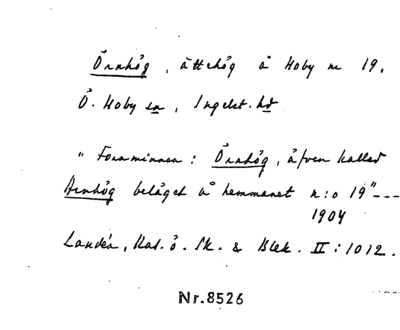 Örnhög, ättehög å Hoby nr 19.
Ö. Hoby sn, Ingelst. hd
"Fornminnen: Örnhög, äfven kallad
Arnhög beläget å hemmanet n:o 19" ---
1904
Landén, Kat. ö. Sk. & Blek. II: 1012.
Nr.8526